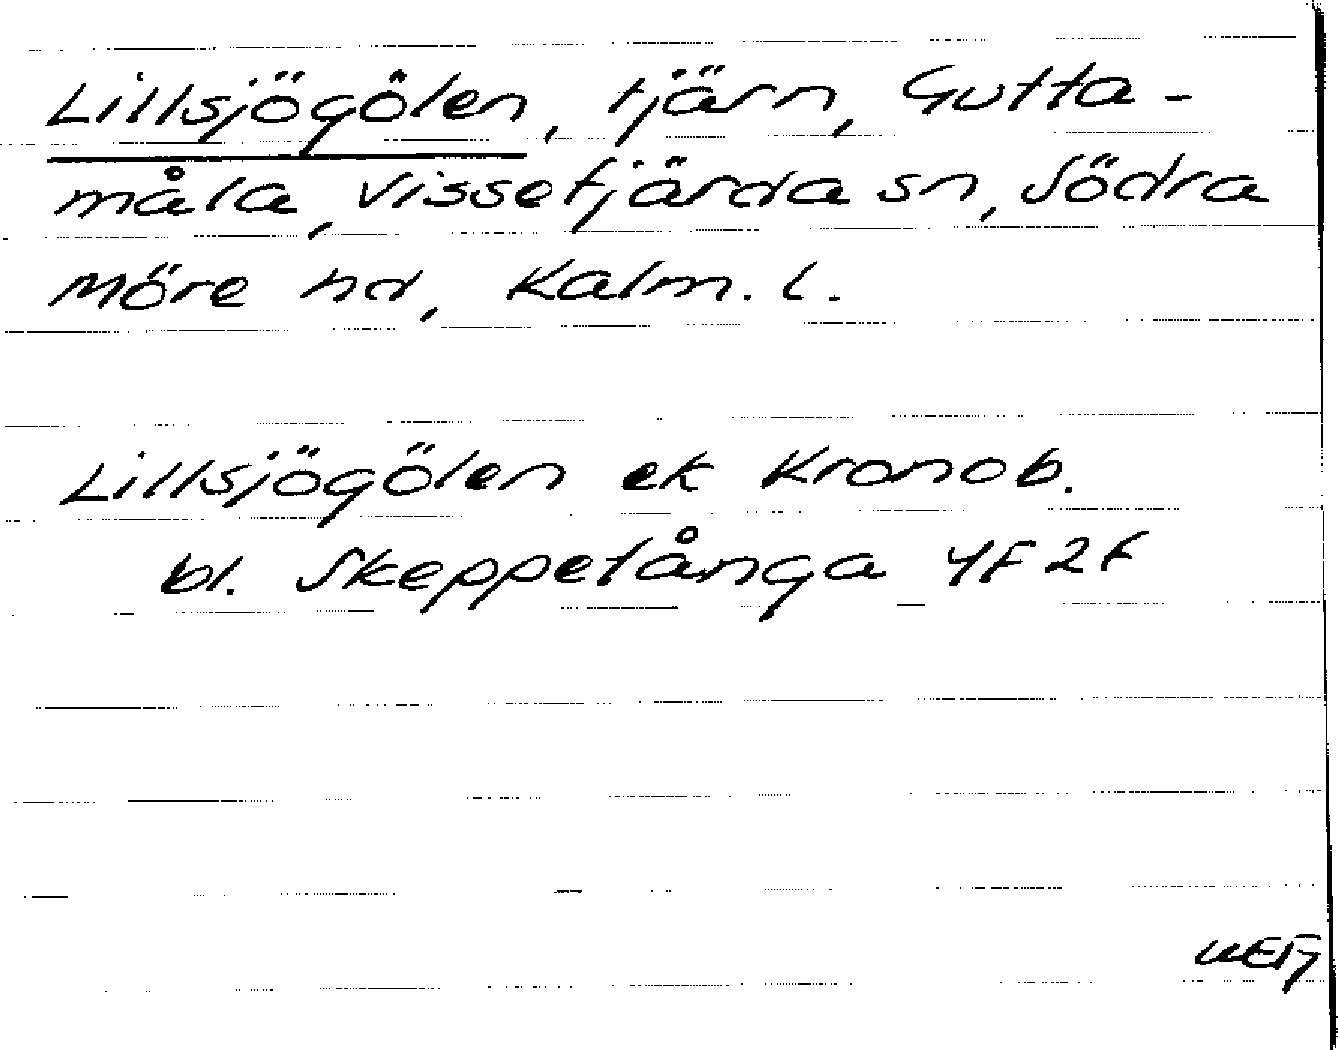 Lillsjögölen, tjärn, Gutta-
måla, Vissefjärda sn, Södra
Möre hd, Kalm. l.
Lillsjögölen ek Kronob.
bl. Skeppetånga 4F 2f